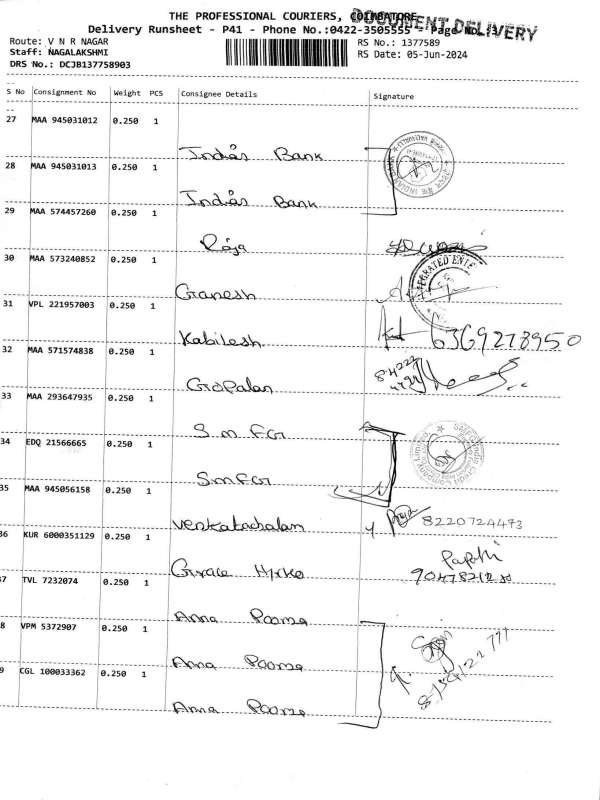 THE PROFESSIONAL COURIERS, COIMBATORE
DOCUMENT DELIVERY
Delivery Runsheet - P41 - Phone No.:0422-3505555 - Page No.:3
Route: V N R NAGAR
Staff: NAGALAKSHMI
DRS No.: DCJB137758903
RS No.: 1377589
RS Date: 05-Jun-2024
S No Consignment No Weight PCS Consignee Details Signature
27 MAA 945031012 0.250 1
Indian Bank
28 MAA 945031013 0.250 1
Indian Bank
29 MAA 574457260 0.250 1
Raja
30 MAA 573240852 0.250 1
Ganesh
31 VPL 221957003 0.250 1
Kabilesh 6369278950
32 MAA 571574838 0.250 1
Gopalan
33 MAA 293647935 0.250 1
S m FG
34 EDQ 21566665 0.250 1
SmFG
35 MAA 945056158 0.250 1
Venkatachalam 8220724473
36 KUR 6000351129 0.250 1
Grace
37 TVL 7232074 0.250 1
Anna Poorna
8 VPM 5372907 0.250 1
Anna Poorna
9 CGL 100033362 0.250 1
Anna Poorna